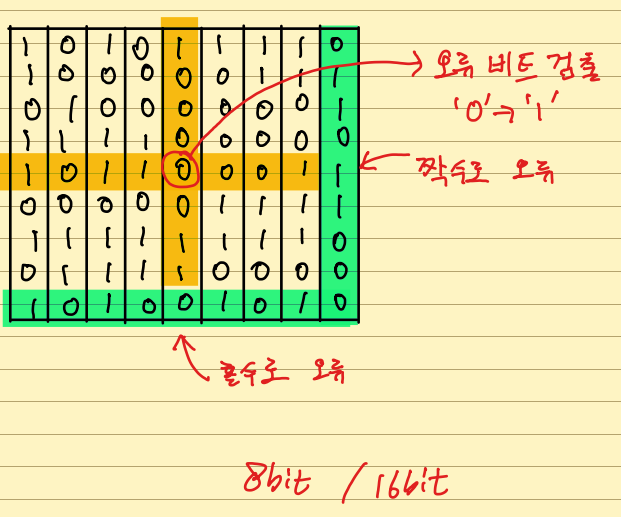 1 0 1 0 1 1 1 1 0
1 0 0 0 0 0 1 1 1
0 1 0 0 0 0 0 0 1
1 1 1 1 0 0 0 0 0
1 0 1 1 0 0 0 1 1
0 0 0 0 0 1 1 1 1
1 1 1 1 1 1 1 1 0
0 1 1 1 1 0 0 0 0
1 0 1 0 0 1 0 1 0
오류 비트 검출
'0'→'1'
짝수로 오류
홀수로 오류
8bit / 16bit